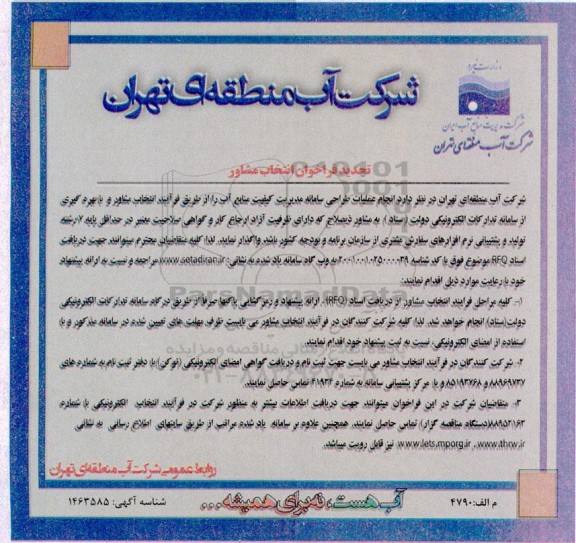 وزارت نیرو
شرکت مدیریت منابع آب ایران
شرکت آب منطقه‌ای تهران
شرکت آب منطقه‌ای تهران
تجدید فراخوان انتخاب مشاور
شرکت آب منطقه‌ای تهران در نظر دارد انجام عملیات طراحی سامانه مدیریت کیفیت منابع آب را از طریق فرآیند انتخاب مشاور و با بهره‌گیری
از سامانه تدارکات الکترونیکی دولت (ستاد)، به مشاور ذیصلاح که دارای ظرفیت آزاد ارجاع کار و گواهی صلاحیت معتبر در حداقل پایه ۷ رشته
تولید و پشتیبانی نرم افزارهای سفارش مشتری از سازمان برنامه و بودجه کشور باشد واگذار نماید. لذا کلیه متقاضیان محترم میتوانند جهت دریافت
اسناد RFQ موضوع فوق با کد شناسه به وب گاه سامانه یاد شده به نشانی: www.setadiran.ir مراجعه و نسبت به ارائه پیشنهاد
خود با رعایت موارد ذیل اقدام نمایند:
۱- کلیه مراحل فرآیند انتخاب مشاور از دریافت اسناد (RFQ)، ارائه پیشنهاد و رمزگشایی پاکتها صرفاً از طریق درگاه سامانه تدارکات الکترونیکی
دولت(ستاد) انجام خواهد شد. لذا کلیه شرکت کنندگان در فرآیند انتخاب مشاور می بایست ظرف مهلت های تعیین شده در سامانه مذکور و با
استفاده از امضای الکترونیکی، نسبت به ثبت پیشنهاد خود اقدام نمایند.
۲- شرکت کنندگان در فرآیند انتخاب مشاور می بایست جهت ثبت نام و دریافت گواهی امضای الکترونیکی (توکن) با دفتر ثبت نام به شماره های
۸۸۹۶۹۷۳۷ و ۸۵۱۹۳۷۶۸ و یا مرکز پشتیبانی سامانه به شماره ۴۱۹۳۴ تماس حاصل نمایند.
۳- متقاضیان شرکت در این فراخوان میتوانند جهت دریافت اطلاعات بیشتر به منظور شرکت در فرآیند انتخاب الکترونیکی با شماره
۸۸۹۵۳۱۶۳(دستگاه مناقصه گزار) تماس حاصل نمایند. همچنین علاوه بر سامانه یاد شده مراتب از طریق سایتهای اطلاع رسانی به نشانی
www.thrw.ir، www.iets.mporg.ir نیز قابل رویت میباشد.
روابط عمومی شرکت آب منطقه‌ای تهران
آب هست، نه برای همیشه...
م الف: ۴۷۹۰
شناسه آگهی: ۱۴۶۳۵۸۵
ParsNamadData